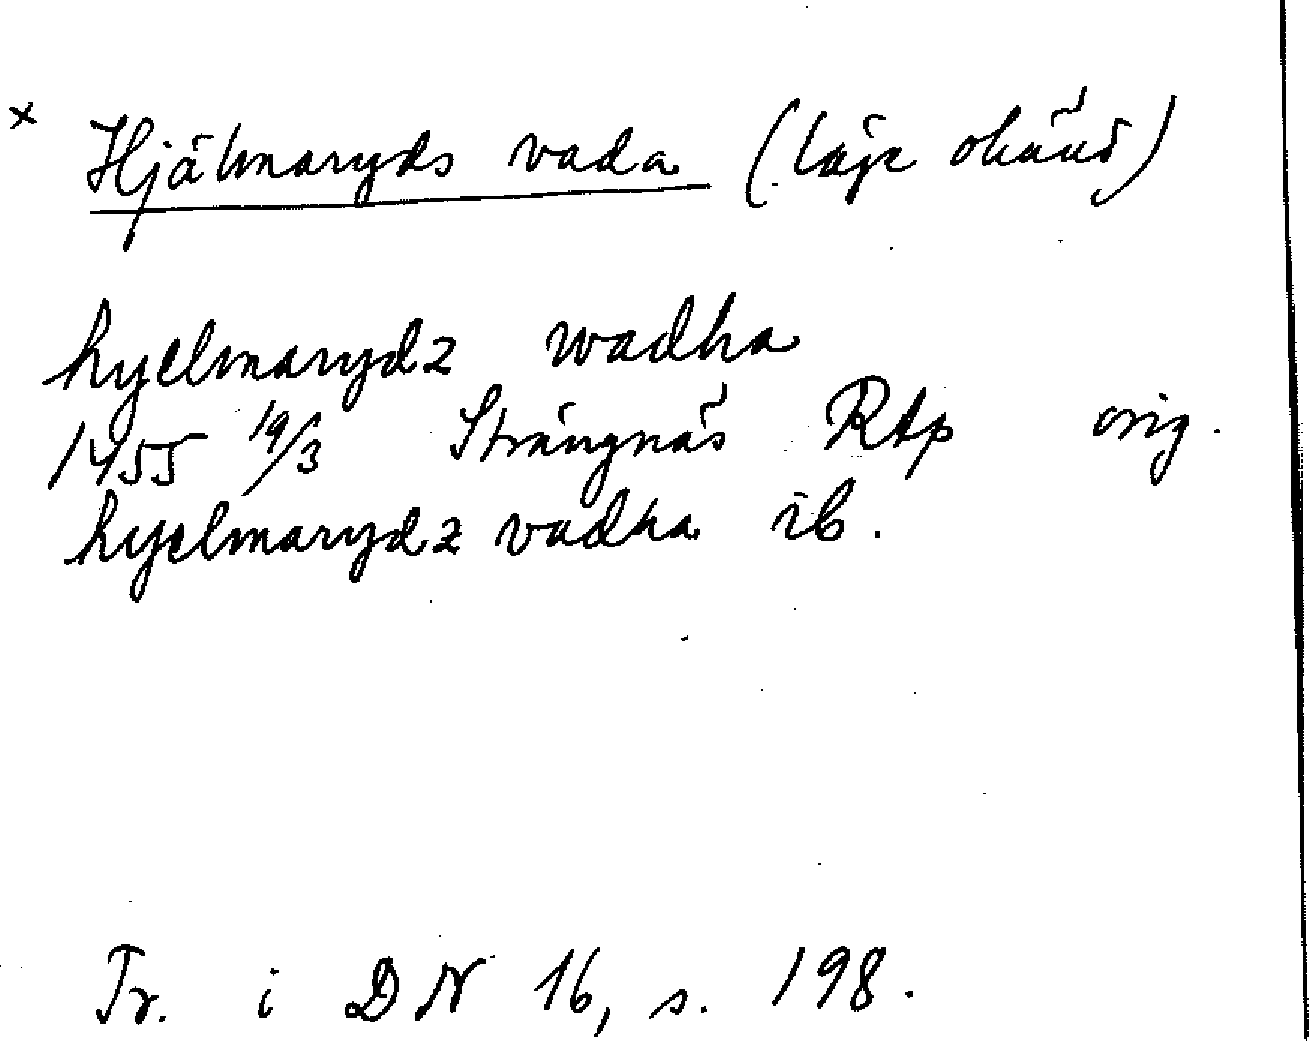 x Hjälmaryds vada (läge okänd)
hyelmarydz wadha
1455 19/3 Strängnäs RAp orig.
hyelmarydz vadha ib.
Tr. i DN 16, s. 198.